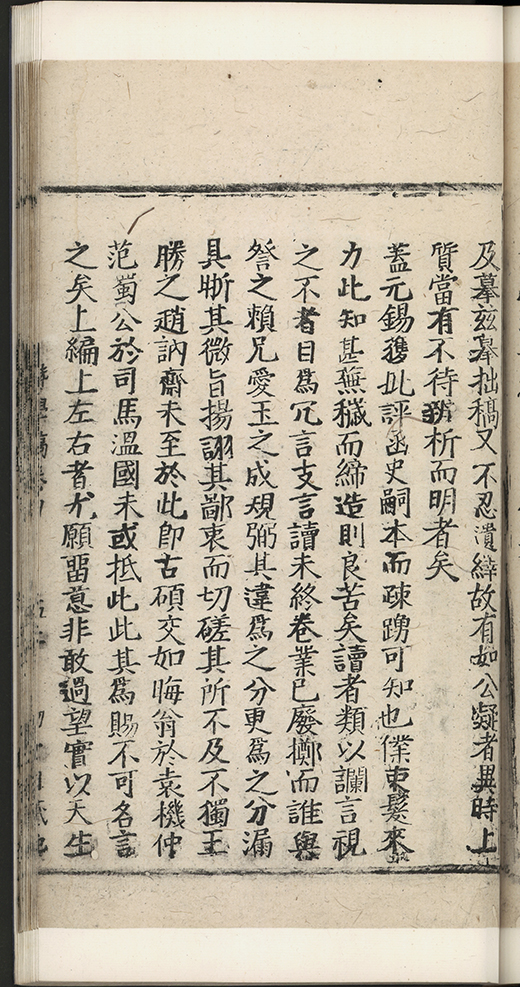 及摹玆摹拙稿又不忍潰辯故有如公凝者異時上
質當有不待辨析而明者矣
葢元錫獲批評函史嗣本而疎踴可知也僕束髮來
力此知甚蕪穢而締造則良苦矣讀者類以讕言視
之不者目爲冗言支言讀未終卷業已廢擲而誰與
詧之賴兄愛玉之成規弼其違爲之分更爲之分漏
具晣其微旨揚詡其鄙衷而切磋其所不及不獨王
勝之趙訥齋未至於此卽古碩交如晦翁於袁機仲
范蜀公於司馬溫國未或抵此此其爲賜不可名言
之矣上編上左右者尤願畱意非敢過望實以天生